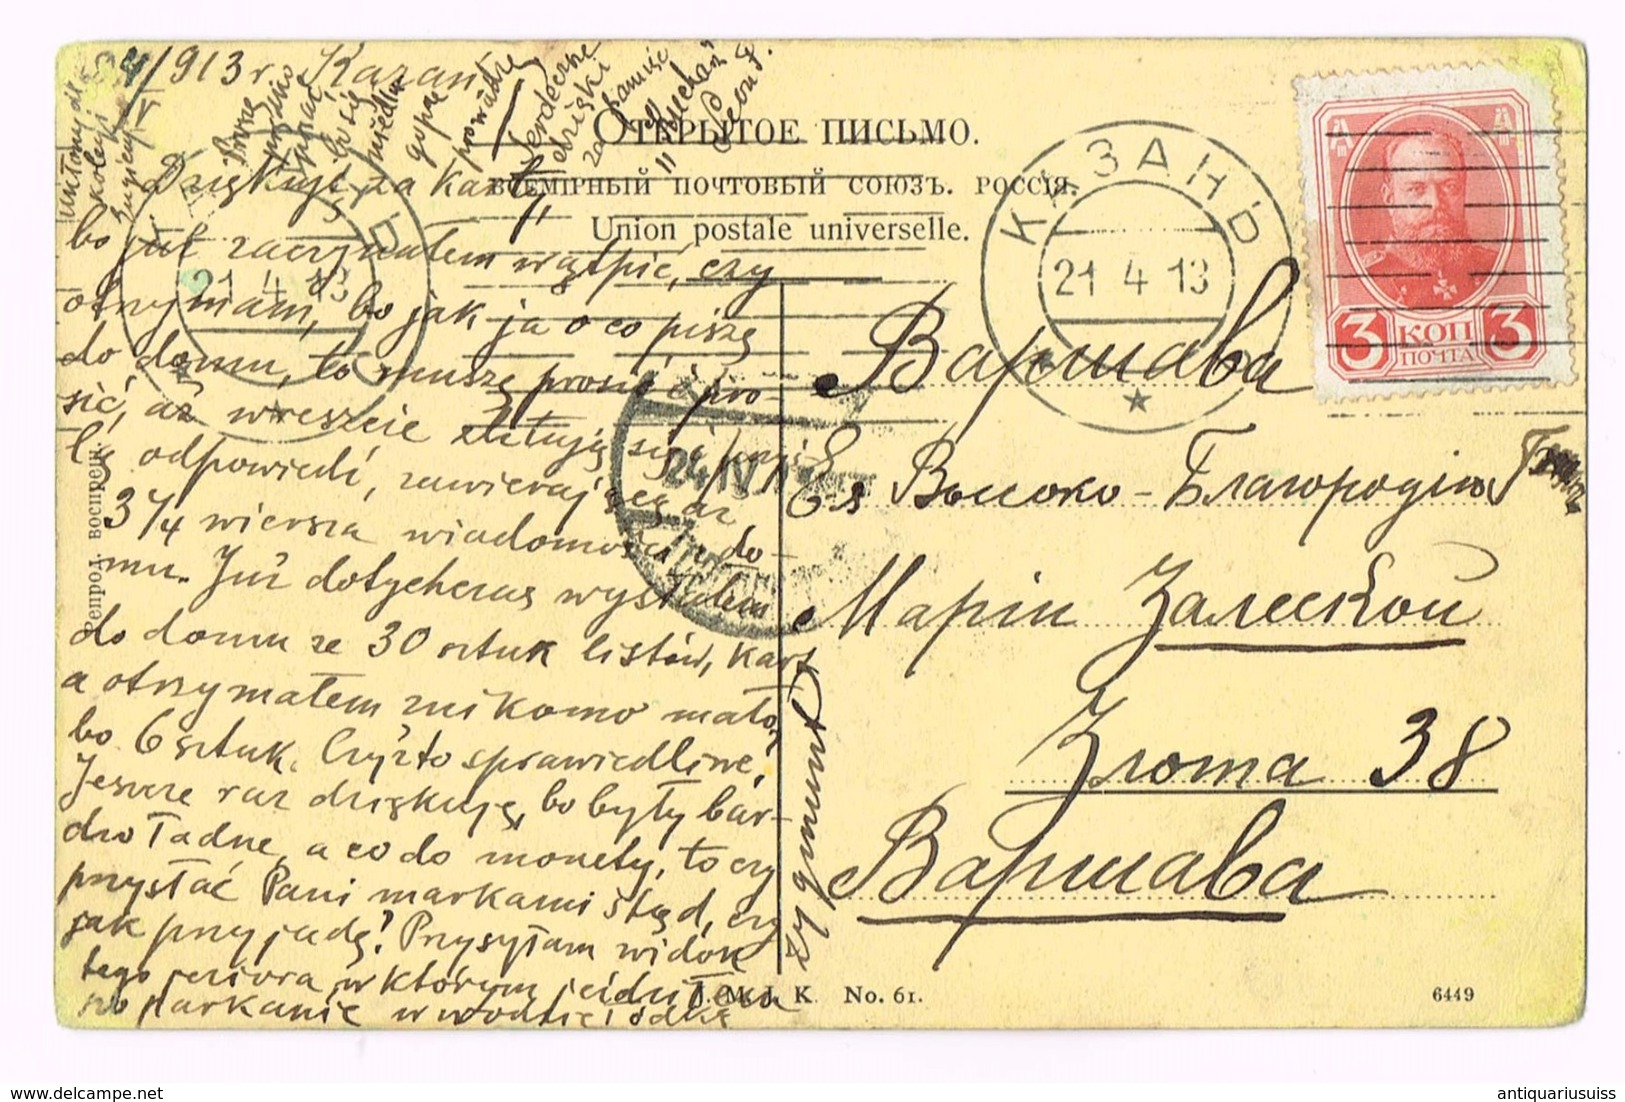 /913 r. Kazań
Serdecznie
ОТКРЫТОЕ ПИСЬМО.
ВСЕМІРНЫЙ ПОЧТОВЫЙ СОЮЗЪ. РОССІЯ.
Union postale universelle.
КАЗАНЬ
21 4 13
КАЗАНЬ
21 4 13
3 КОП 3
ПОЧТА
24 IV
Dziękuję za kartę,
bo już zaczynałem wątpić, czy
otrzymam, bo jak ja o co piszę
do domu, to muszę prosić i pro-
sić, aż wreszcie zlitują się i
odpowiedź, zawierającą aż
3 3/4 wiersza wiadomości z do-
mu. Już dotychczas wysłałem
do domu ze 30 sztuk listów, kart
a otrzymałem znikomo mało,
bo 6 sztuk. Czyż to sprawiedliwe?
Jeszcze raz dziękuję, bo były bar-
dzo ładne, a co do monety, to czy
przysłać Pani markami stąd, czy
jak przyjadę? Przysyłam widok
tego jeziora, w którym
po parkanie w wodzie i
Zygmunt
Варшава
Ея Высоко-Благородію
Маріи Залеской
Злота 38
Варшава
Репрод. воспрещ.
J. M. J. K. No. 61.
6449
delcampe.net
antiquariusuiss